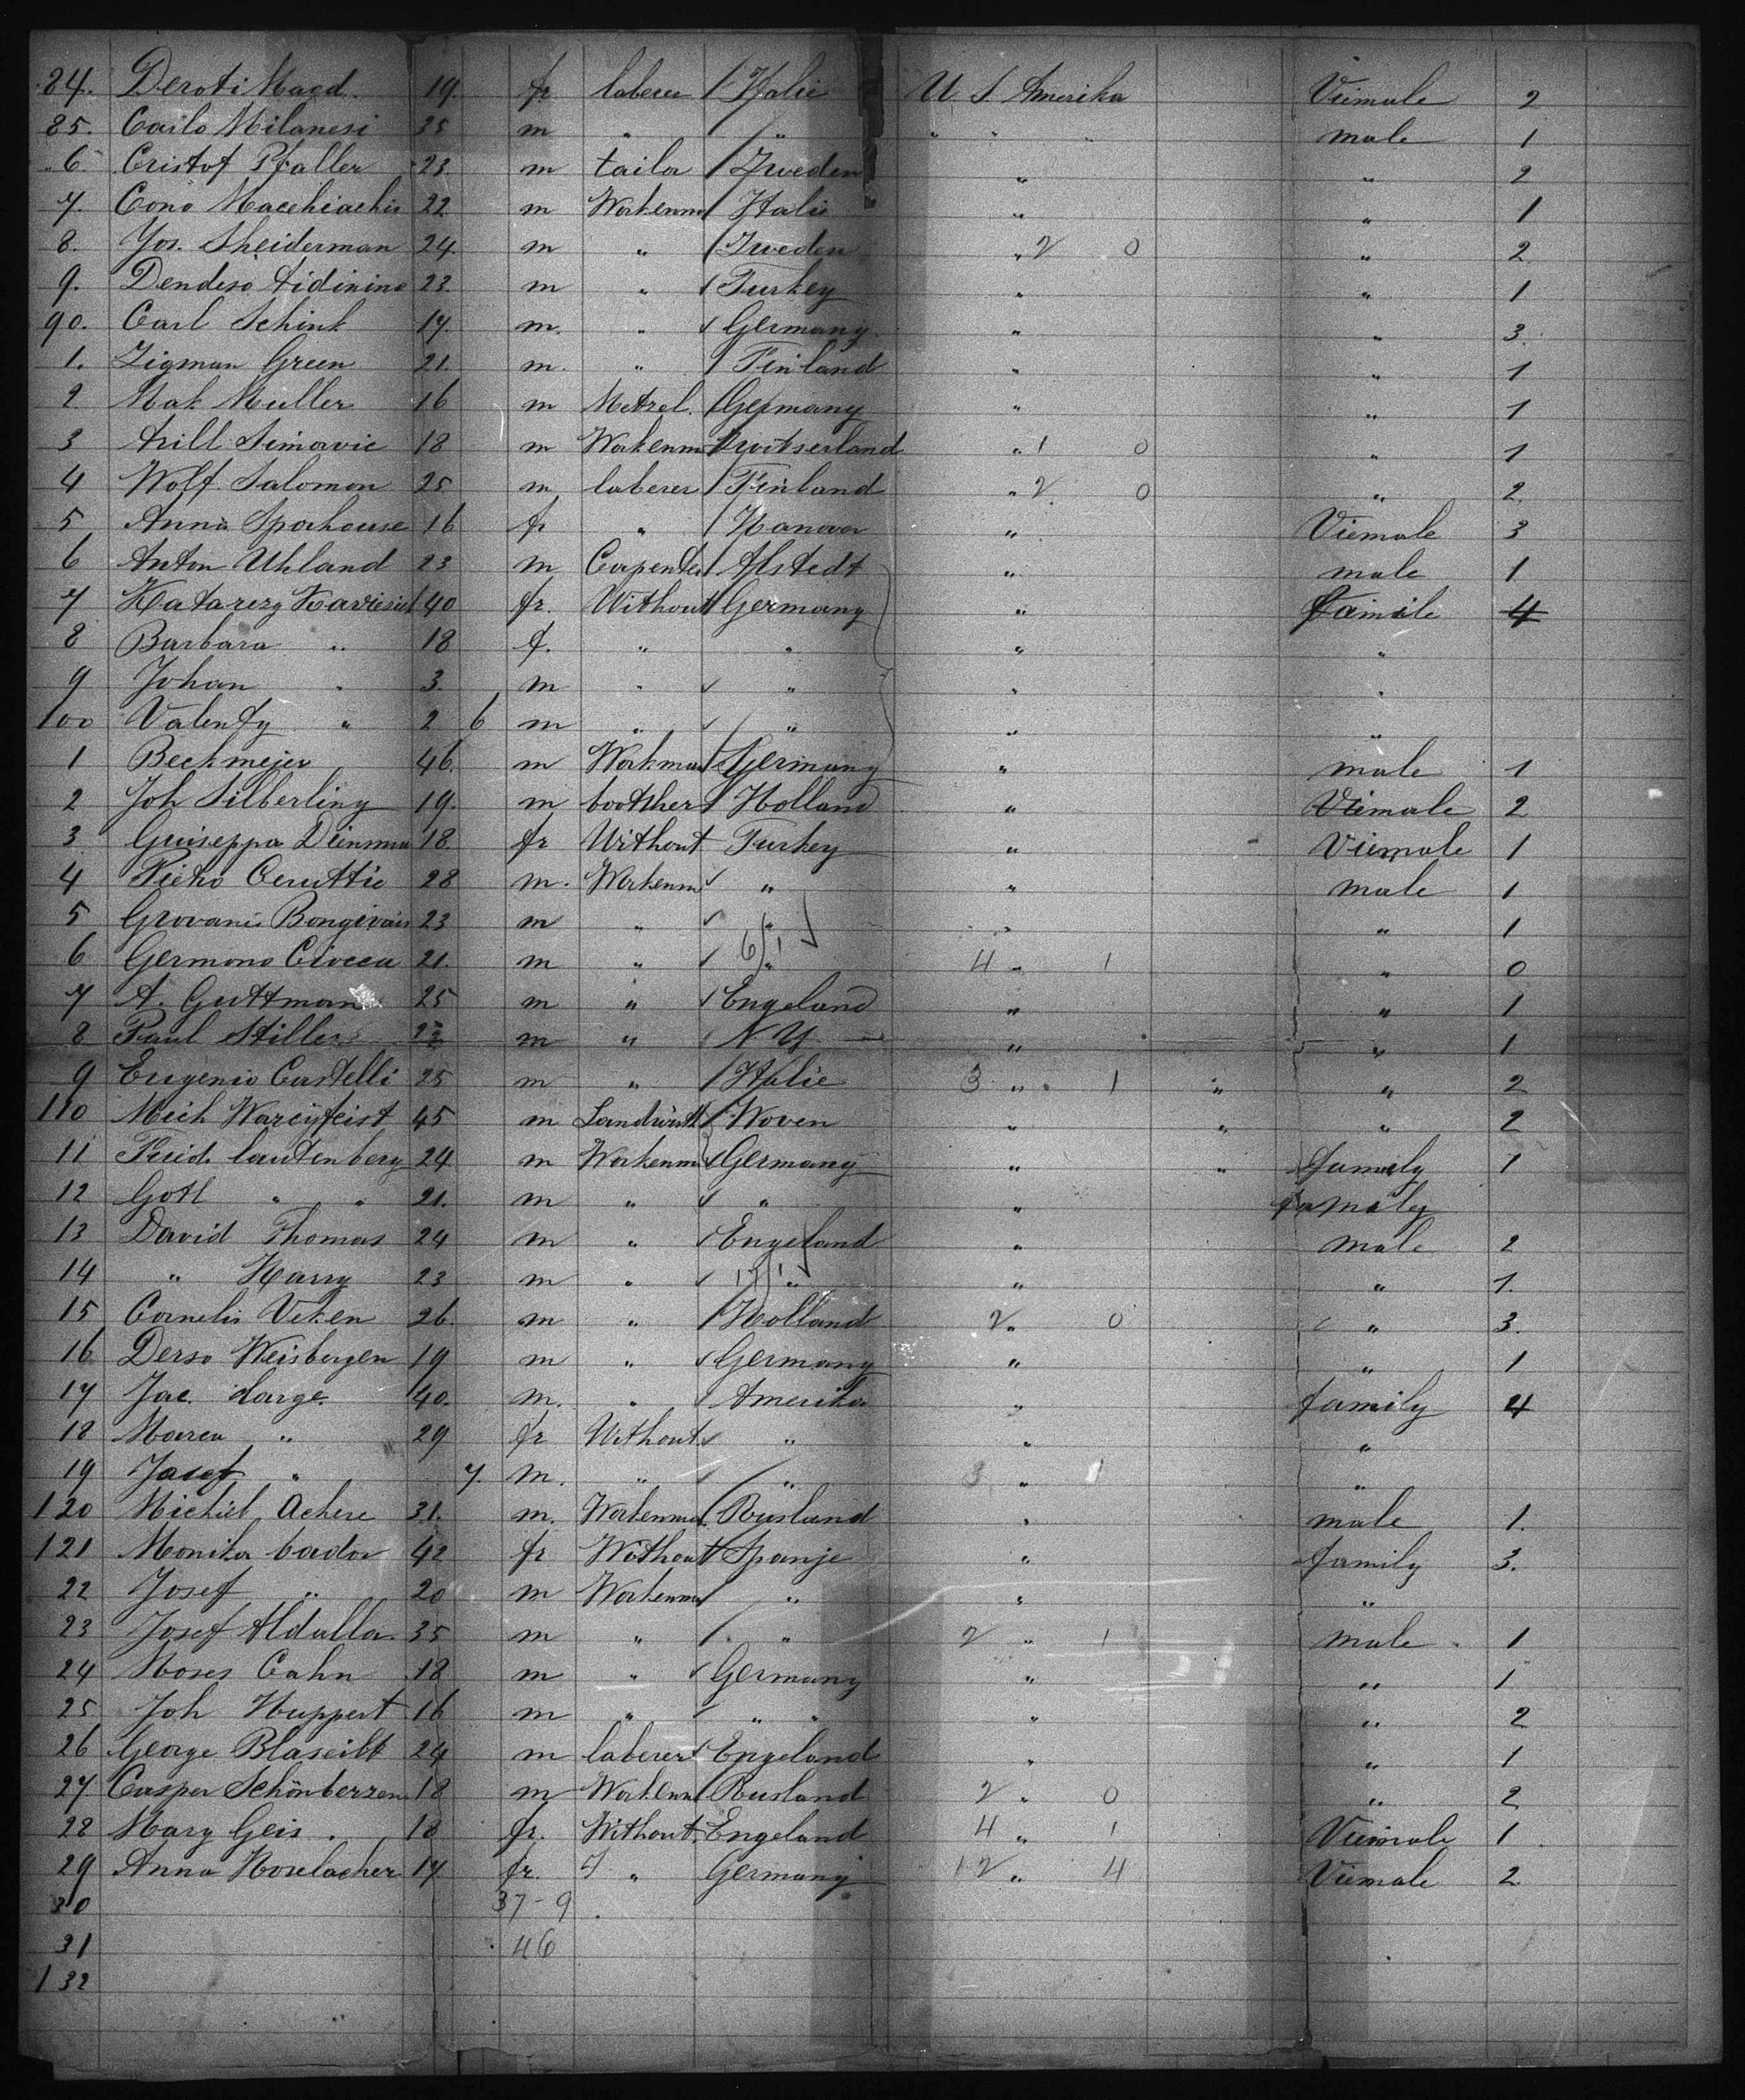 84. Deroti Magd. 19. fr laberer / Italie U. S. Amerika Viemale 2
85. Carlo Milanesi 35 m " / " " " " male 1
6. Cristof Pfaller 23. m tailor / Zweden " " 2
7. Cono Macchiachi 22 m Workenm / Italie " " 1
8. Jos. Sheiderman 24. m " / Zweden " 2 0 " 2
9. Dendiso 23. m " / Turkey " " 1
90. Carl Schink 17. m. " / Germany " " 3.
1. Zigman Green 21. m. " / Finland " " 1
2. Mak Muller 16 m Metzel. / Germany " " 1
3 Arill Simovic 18 m Workenm Zwitserland " 1 0 " 1
4 Wolf. Salomon 25 m laberer / Finland " 2 0 " 2
5 Anna Sporhouse 16 fr " / Hanover " Viemale 3
6 Anton Uhland 23 m Carpenter / Alstedt " male 1
7 Katarezy 40 fr. Without / Germany " Famile 4
8 Barbara " 18 f. " " " "
9 Johan " 3. m " " " "
100 Valenty " 2 6 m " " " "
1 Beckmejer 46. m Workman / Germany " male 1
2 Joh Silberling 19. m bootsher / Holland " Viemale 2
3 Guiseppa 18. fr Without Turkey " Viemale 1
4 Pietro Ceruttie 28 m. Workenm " " male 1
5 Grovani Bongivais 23 m " " " " 1
6 Germono Ciocca 21. m " 6/1 " 4 " 1 " 0
7 A. Guttman 25 m " Engeland " " 1
8 Paul Stiller m " / N Y. " " 1
9 Eugenio Castelli 25 m " / Italie 3 " 1 " " 2
110 Mich 45 m Landwirth / Woven " " " 2
11 Frid. lautenberg 24 m Workenm Germany " " family 1
12 Gotl " " 21. m " " " family
13 David Thomas 24 m " Engeland " male 2
14 " Harry 23 m " 17/1 " " " 1.
15 Cornelis Veken 26. m " / Holland 2 " 0 " 3.
16 Derso Weisbergen 19 m " Germany " " 1
17 Jac. Large. 40. m. " Amerika " family 4
18 Marea " 29 fr Without " " "
19 Josef " 7. m. " " 3 " 1 "
120 Michiel Achere 31. m. Workenm / Rusland " male 1.
121 Monika bador 42 fr Without / Spanje " family 3.
22 Josef " 20 m Workenm " " "
23 Josef Aldalla. 35 m " / " 2 " 1 male 1
24 Moses Cahn 18 m " Germany " " 1
25 Joh Huppert 16 m " " " " " 2
26 George Blaseibt 24 m laberer Engeland " " 1
27 Casper Schönberzen 18 m Workenm / Rusland 2 " 0 " 2
28 Mary Geis. 18 fr. Without. Engeland 4 " 1 Viemale 1
29 Anna Hoselacher 17. fr. " Germany 12 " 4 Viemale 2
30 37-9
31 46
132